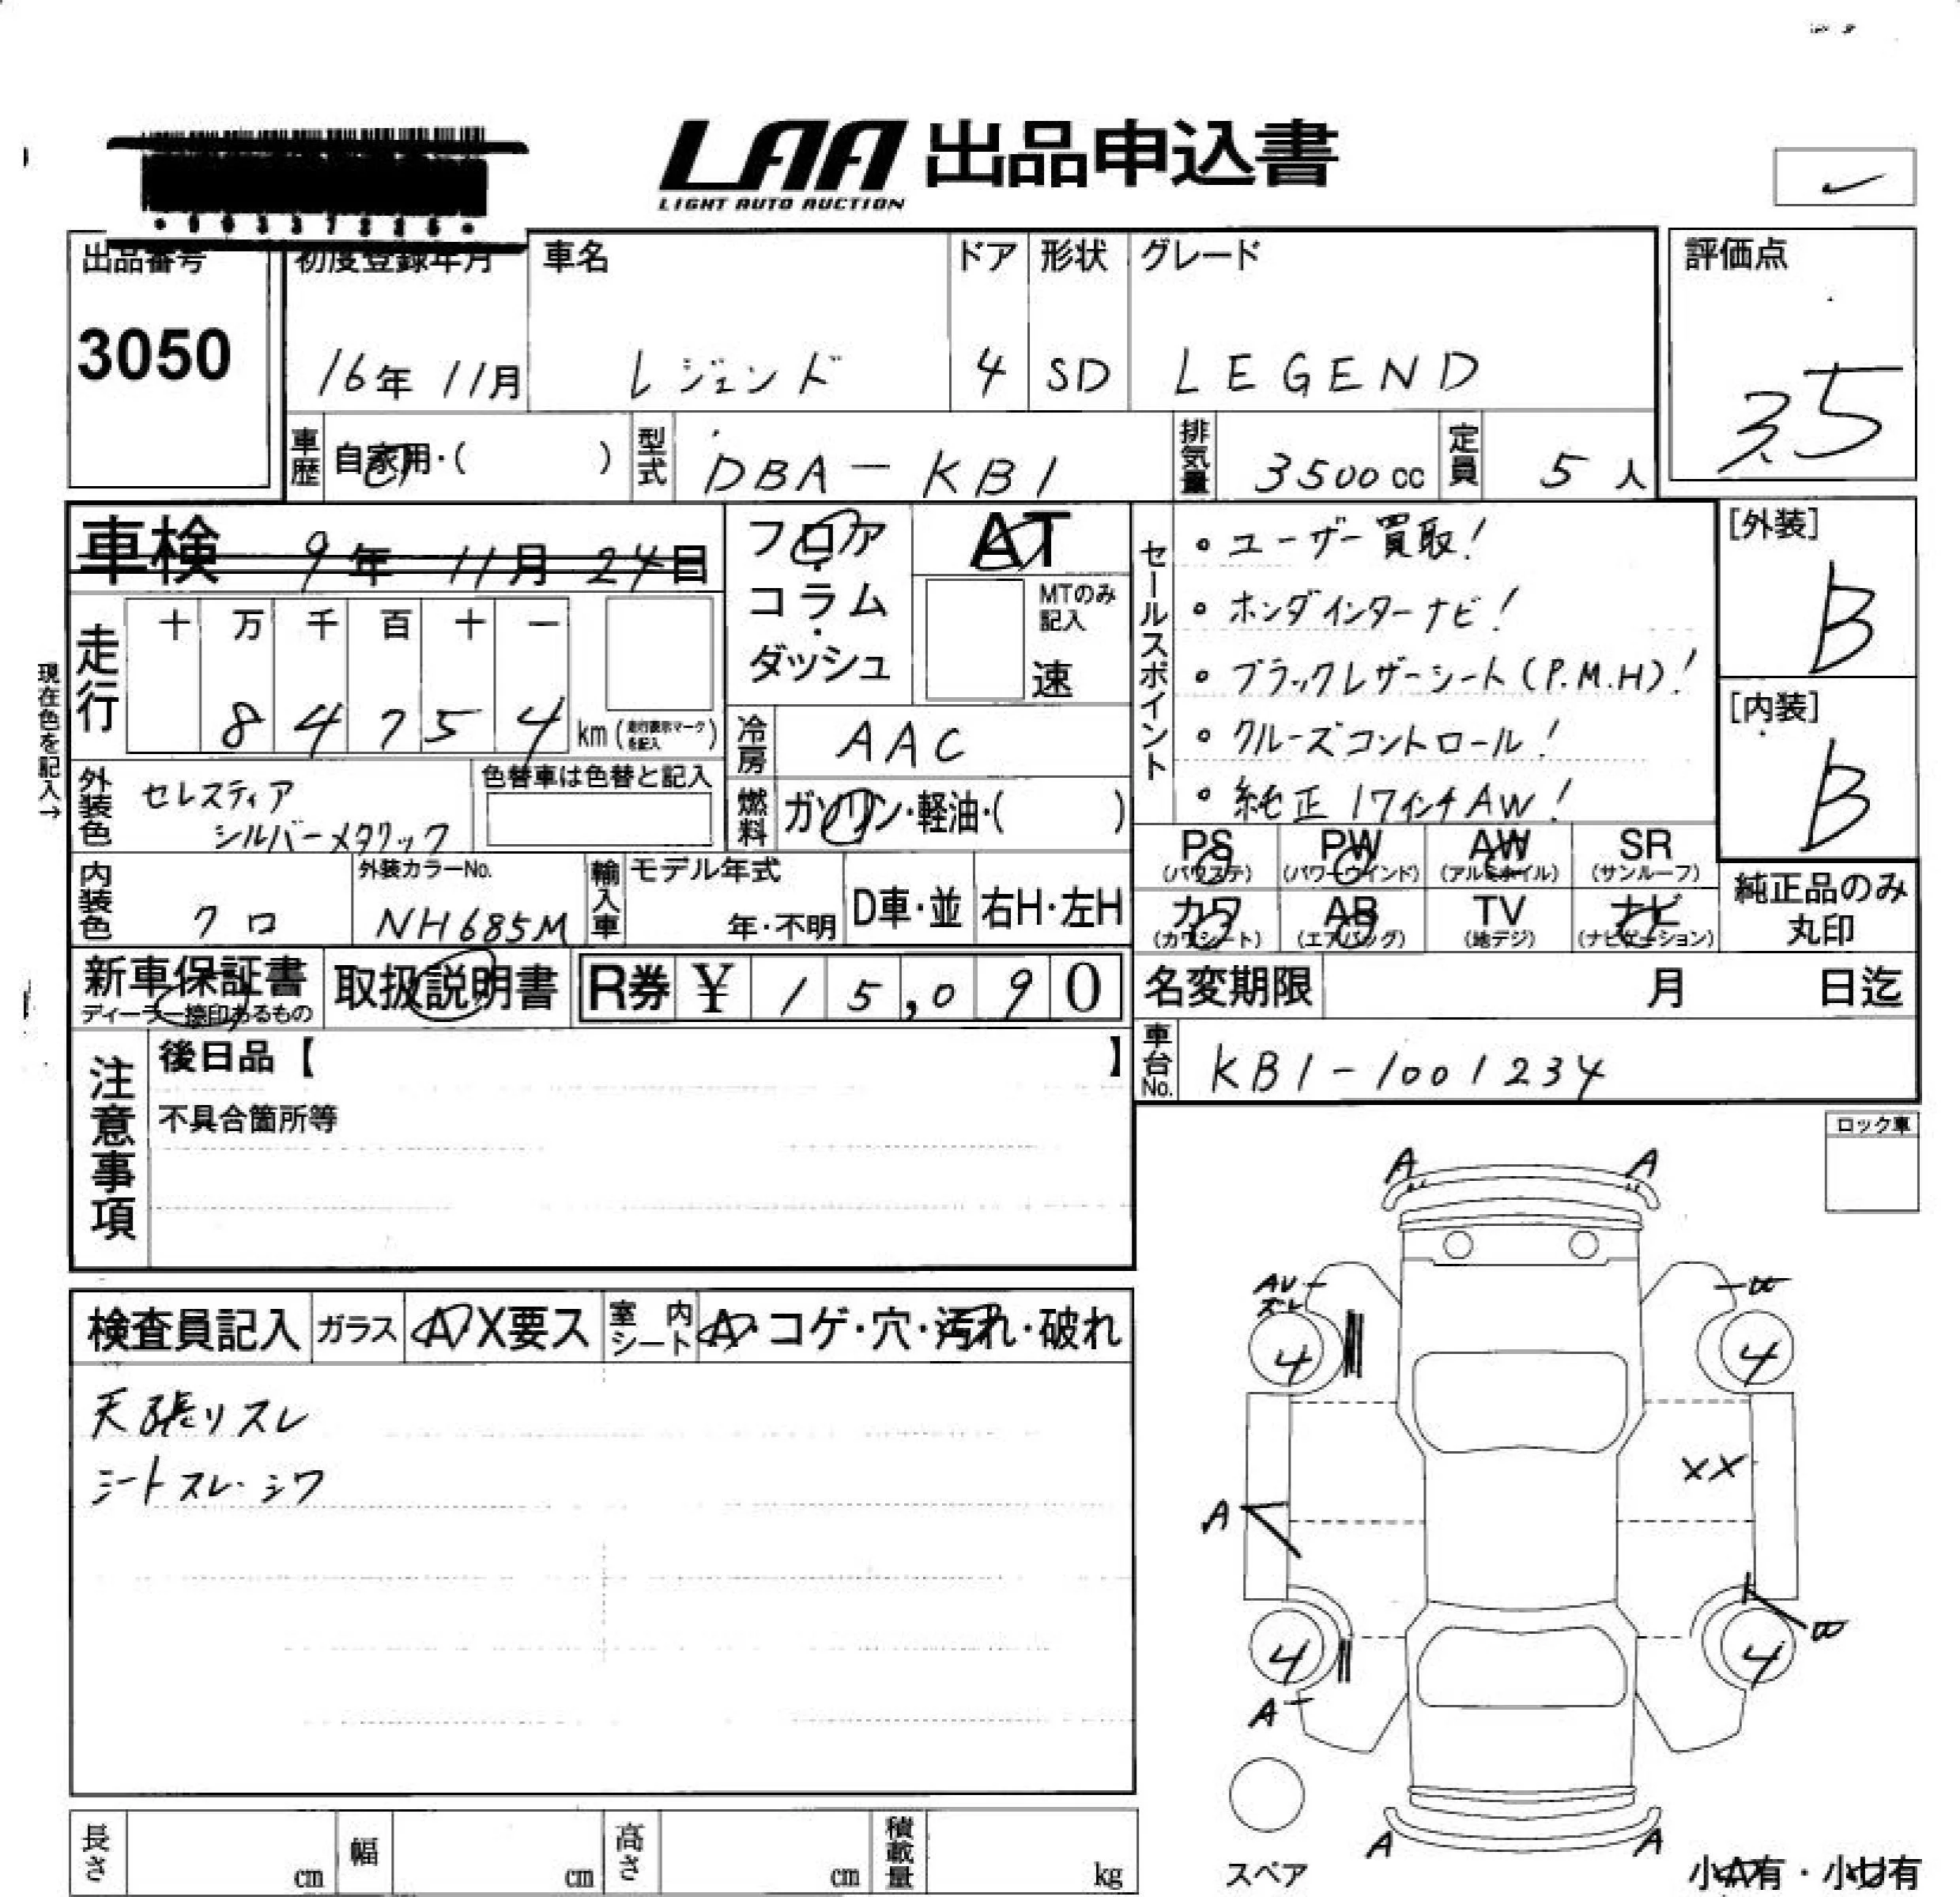 LAA 出品申込書
LIGHT AUTO AUCTION
出品番号 初度登録年月 車名 ドア 形状 グレード 評価点
3050 16年 11月 レジェンド 4 SD LEGEND 3.5
車歴 自家用・( ) 型式 DBA-KB1 排気量 3500cc 定員 5人
車検 9年 11月 24日 フロア・コラム・ダッシュ AT
MTのみ記入 速
セールスポイント
・ユーザー買取!
・ホンダインターナビ!
・ブラックレザーシート(P.M.H)!
・クルーズコントロール!
・純正17インチAW!
[外装] B
[内装] B
走行 十 万 千 百 十 一
8 4 7 5 4 km (走行表示マークを記入)
現在色を記入→
冷房 AAC
外装色 セレスティア
シルバーメタリック
色替車は色替と記入
燃料 ガソリン・軽油・( )
PS (パワステ) PW (パワーウインド) AW (アルミホイル) SR (サンルーフ)
カワ (カワシート) AB (エアバッグ) TV (地デジ) ナビ (ナビゲーション)
純正品のみ
丸印
内装色 クロ 外装カラーNo. NH685M 輸入車 モデル年式 年・不明 D車・並 右H・左H
新車保証書 取扱説明書 R券 ¥ 15,090 名変期限 月 日迄
ディーラー捺印あるもの
注意事項 後日品【 】 車台No. KB1-1001234
不具合箇所等
ロック車
検査員記入 ガラス A・X要ス 室内シート A・コゲ・穴・汚れ・破れ
天張リスレ
シートスレ・シワ
A A
AU
ズレ
4 4
XX
A
B
4 4
A
A A
スペア
小A有・小U有
長さ cm 幅 cm 高さ cm 積載量 kg